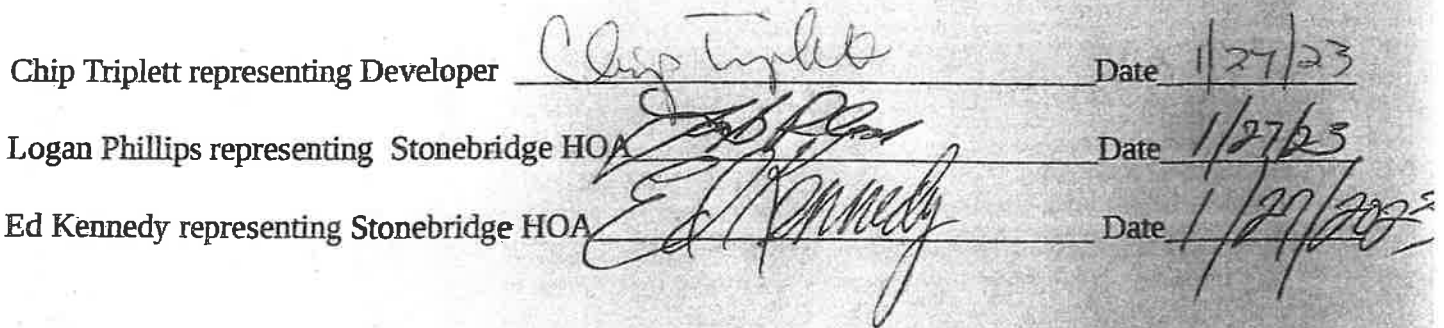 Chip Triplett representing Developer Chip Triplett Date 1/27/23
Logan Phillips representing Stonebridge HOA Date 1/27/23
Ed Kennedy representing Stonebridge HOA Ed Kennedy Date 1/27/202